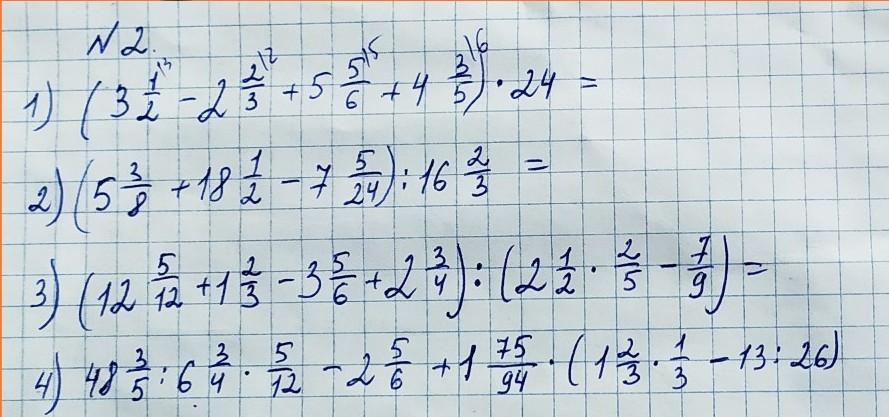 N 2.
1) (3 1/2 \3 - 2 2/3 \2 + 5 5/6 \5 + 4 3/5 \6) · 24 =
2) (5 3/8 + 18 1/2 - 7 5/24) : 16 2/3 =
3) (12 5/12 + 1 2/3 - 3 5/6 + 2 3/4) : (2 1/2 · 2/5 - 7/9) =
4) 48 3/5 : 6 3/4 · 5/12 - 2 5/6 + 1 75/94 · (1 2/3 · 1/3 - 13 : 26)